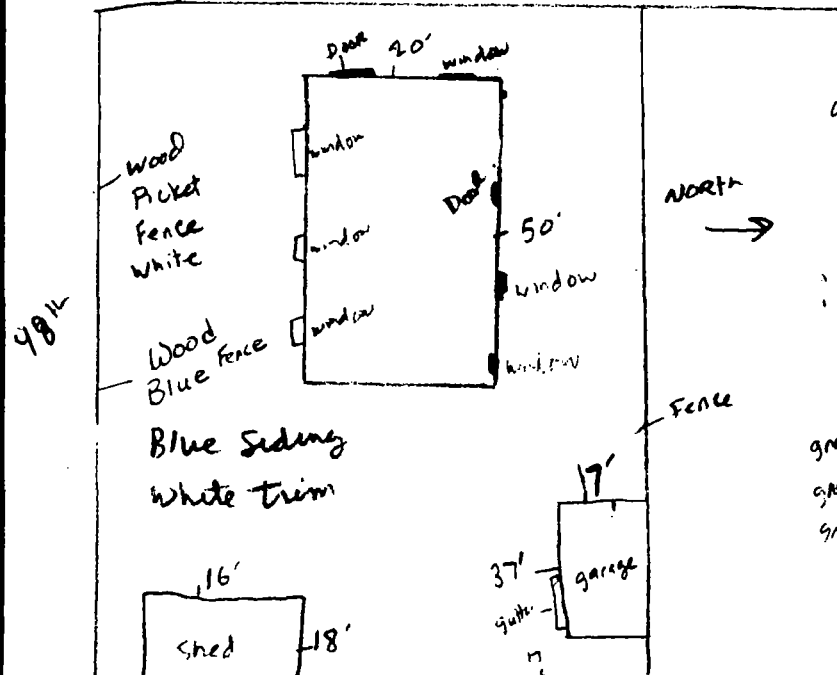 Door 20' window
window
wood
Picket
Fence
white
Door
NORTH
50'
window
window
48th
Wood
Blue Fence
window
window
Fence
Blue Siding
White trim
17'
16'
37'
garage
shed
18'